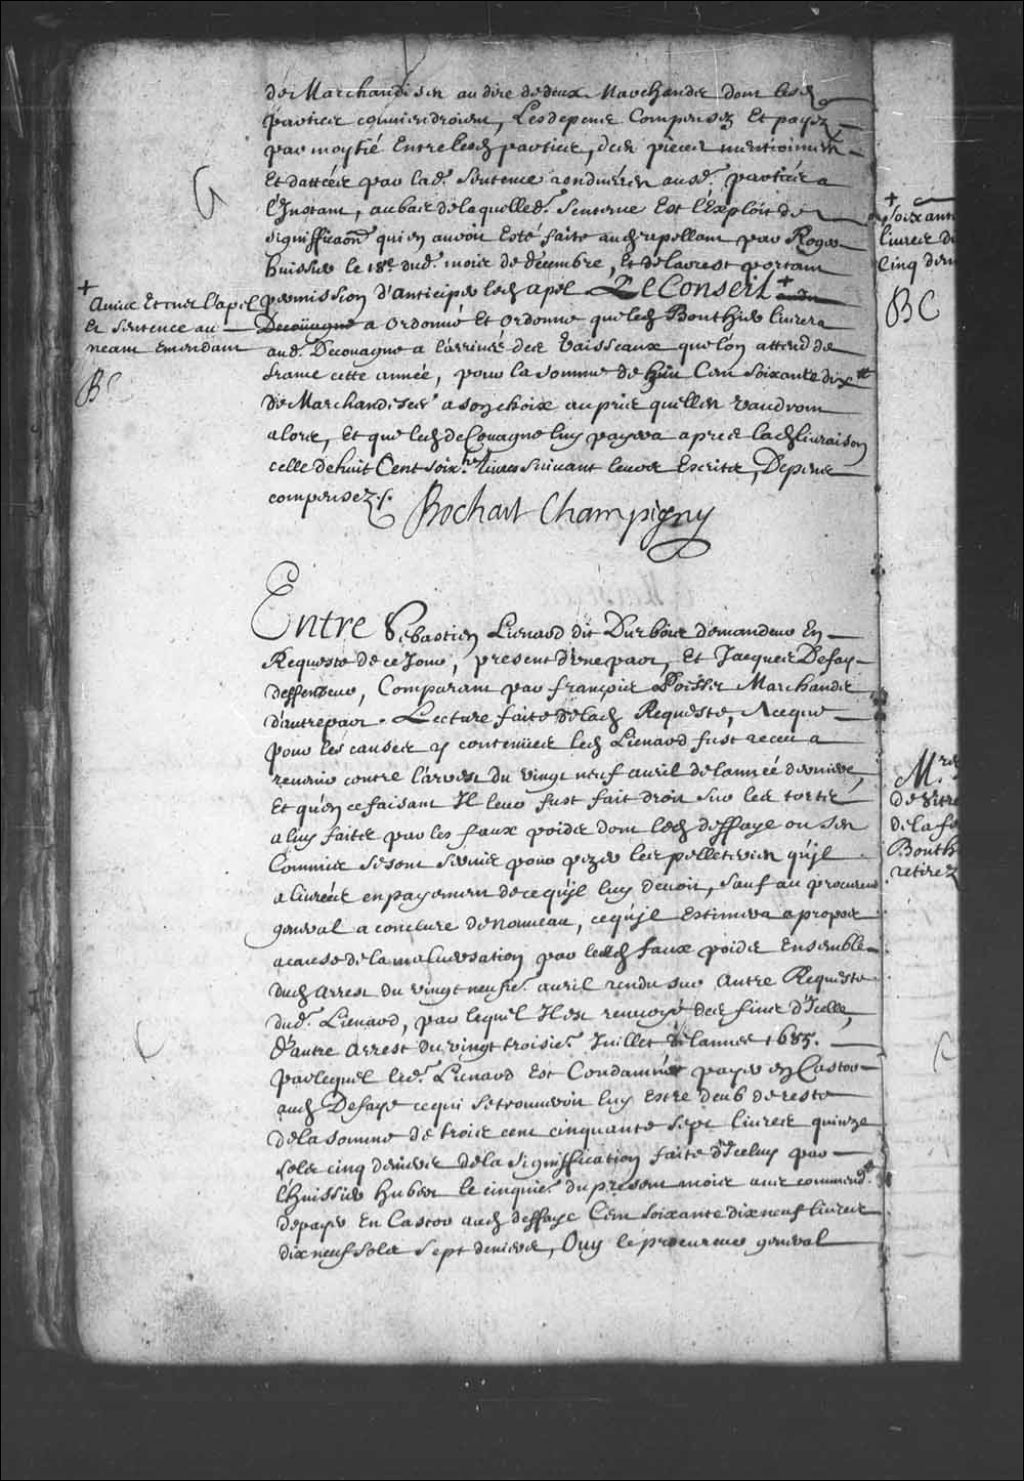 de Marchandises au dire de deux Marchands dont lesd.
parties conviendroient, Les depens Compensez Et payez
par moytié Entre lesd parties, des pieces mentionnées
Et dattées par lad. Sentence rendües ausd. parties a
l'Instant, au bas de laquelled. Sentence Est l'Exploit de
Signifficaon qui en auroit Esté faite aud appellant par Roger
huissier le 18e dud. mois de decembre, Et de larrest portant
permission d'anticiper led apel Le Conseil +
Decoüagne a Ordonné Et Ordonne que led Bouthier livrera
aud. Decouagne a l'arrivée des Vaisseaux que lon attend de
france cette année, pour la somme de huit Cent soixante dix tt
de Marchandises a son choix au prix quelles vaudront
alors, Et que led deCouagne luy payera apres lad livraison
celle de huit Cent soix.te livres suivant leurs Escrits, Depens
compensez ./.
Bochart Champigny
+
a mis Et met l'apel
Et sentence au
neant Emendant
BC
Entre Sebastien Lienard dit Durbois demandeur En
Requeste de ce Jour, present d'une part, Et Jacques Defay
deffendeur, Comparant par françois Poisset Marchand
d'autre part. Lecture faite de lad Requeste, A ce que
pour les causes y contenües led Lienard fust receu a
revenir contre l'arrest du vingt neuf avril de lannée derniere,
Et qu'en ce faisant Il leur fust fait droit sur les torts
a luy faits par les faux poids dont led deffaye ou ses
Commis se sont servis pour pezer les pelleteries qu'jl
a livrées en payement de ce qu'jl luy devoit, sauf au procureur
general a conclure de nouveau, ce qu'jl Estimera a propos
a cause de la malversation par lesd faux poids Ensemble
dud Arrest du vingt neufie. avril rendu sur Autre Requeste
dud. Lienard, par lequel Il est renvoyé des fins d'Icelle,
d'autre Arrest du vingt troisie. Juillet de lannée 1685.
par lequel led. Lienard Est Condamné payer en Castor
aud Defaye ce qui se trouveroit luy Estre deub de reste
de la somme de trois cent cinquante sept livres quinze
sols cinq deniers de la signiffication faite d'Iceluy par
l'huissier hubert le cinquie. du present mois avec commend.t
de payer En Castor aud deffaye Cent soixante dix neuf livres
dix neuf sols sept deniers, Ouy le procureur general
+
soixante
livres d
cinq den
BC
M.rs
de vitre
de la f
Bouth
retirez